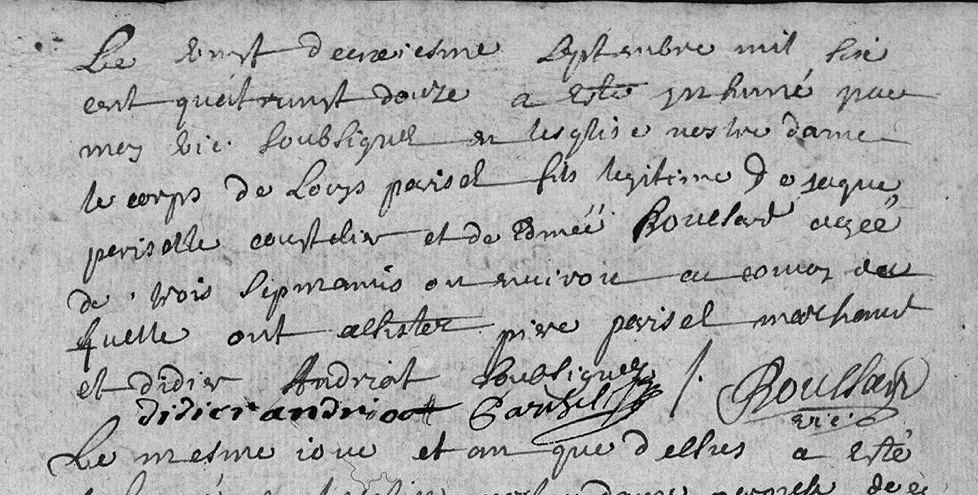 Le vingt deuxiesme septembre mil six
cent quatrvingt douze a esté inhumé par
moy vic. soubsigné en lesglise nostre dame
le corps de Louys parisel fils legitime de Jaque
pariselle coustelier et de Edmée Roussard agéé
de trois sepmainis ou environ au convoy
ont assister piere parisel marchand
et didier Andriot soubsignez
didierandriot Parisel Roussard
vic.
Le mesme iour et an que dessus a esté